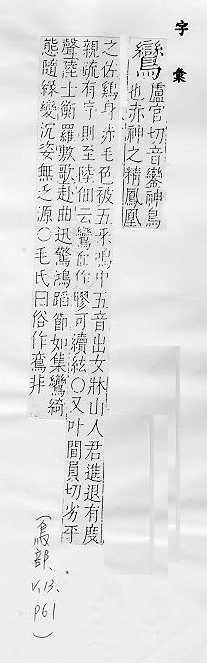 字彙
鸞
盧官切音鑾神鳥
也赤神之精鳳凰
之佐雞身赤毛色被五采鳴中五音出女牀山人君進退有度
親疏有字則至陸佃云鸞血作膠可續絃○又叶閭員切劣平
聲陸士衡羅敷歌赴曲迅驚鴻蹈節如集鸞綺
態隨緣變沉姿無乏源○毛氏曰俗作鵉非
(鳥部、
v.13.
p61
)